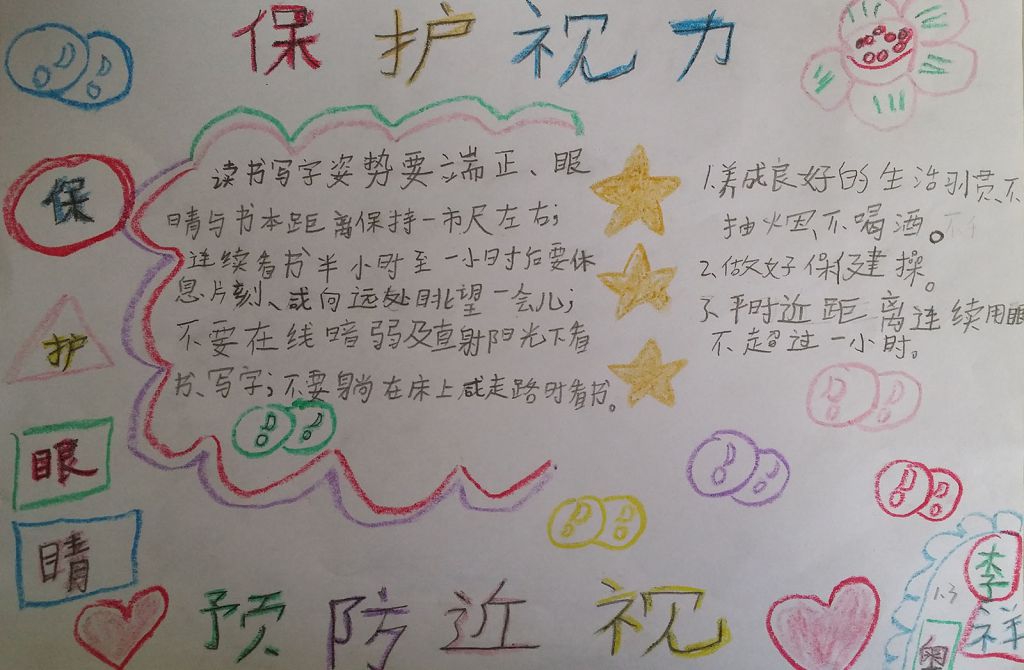 保护视力
保
护
眼
晴
读书写字姿势要端正、眼
晴与书本距离保持一市尺左右；
连续看书半小时至一小时后要休
息片刻、或向远处眺望一会儿；
不要在线暗弱及直射阳光下看
书、写字；不要躺在床上或走路时看书。
1.养成良好的生活习贯、不
抽烟、不喝酒。
2.做好保健操。
3、平时近距离连续用眼
不超过一小时。
预防近视
1.3
李
祥